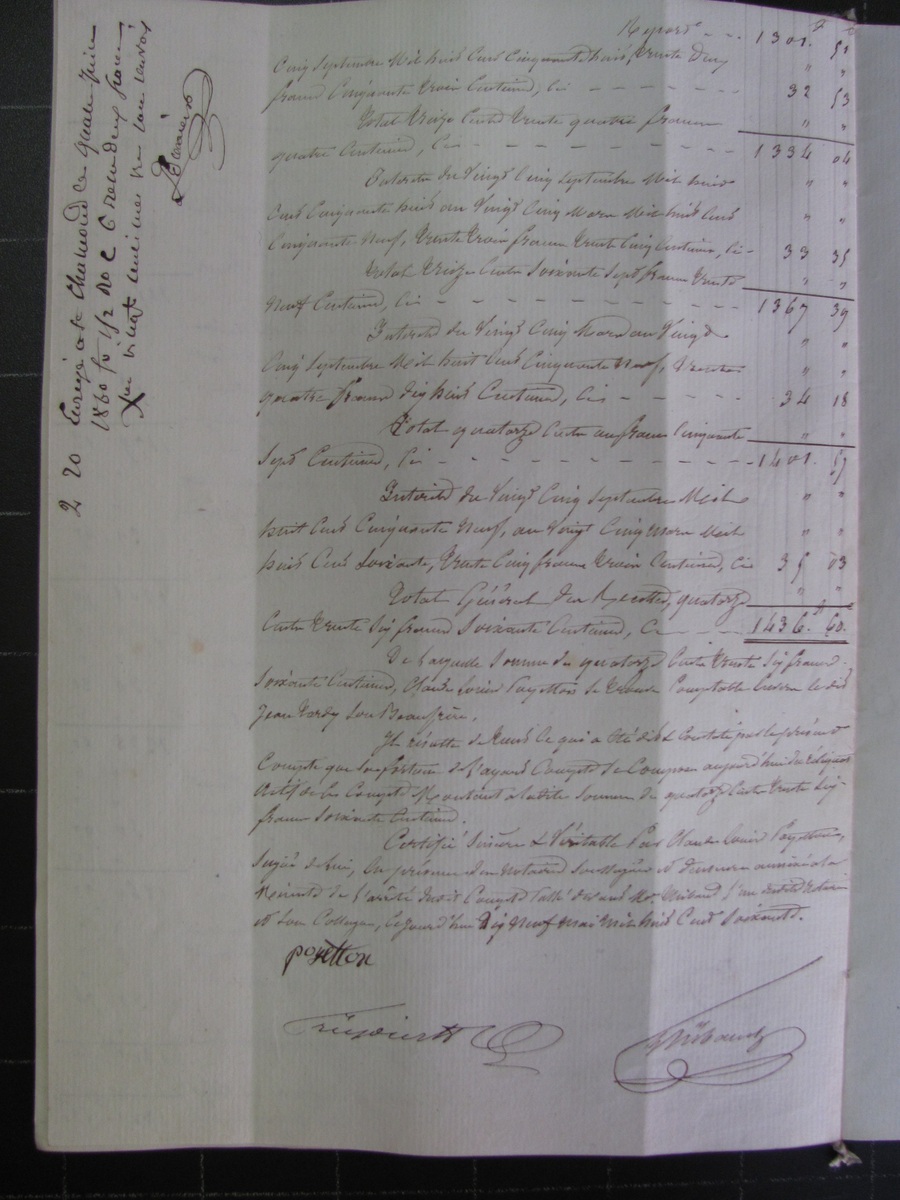 Report - - 1301. 51
Cinq Septembre Mil huit Cent Cinquante huit, trente deux " "
francs Cinquante trois Centimes, Ci - - - - - - - 32 53
Total treize Cents trente quatre francs " "
quatre Centimes, Ci - - - - - - - - - - 1334 04
Interets du Vingt Cinq Septembre Mil huit " "
Cent Cinquante huit au Vingt Cinq Mars Mil huit Cent " "
Cinquante Neuf, trente trois francs trente Cinq Centimes, Ci - 33 35
Total treize Cents Soixante Sept francs trente " "
Neuf Centimes, Ci - - - - - - - - - 1367 39
Interets du Vingt Cinq Mars au Vingt " "
Cinq Septembre Mil huit Cent Cinquante Neuf, trente " "
quatre francs dix huit Centimes, Ci - - - - - - 34 18
Total quatorze Cents un francs Cinquante " "
Sept Centimes, Ci - - - - - - - - - - 1401. 57
Interets du Vingt Cinq Septembre Mil " "
huit Cent Cinquante Neuf, au Vingt Cinq Mars Mil " "
huit Cent Soixante, trente Cinq francs trois Centimes, Ci 35 03
Total Général des Recettes, quatorze " "
Cents trente Six francs Soixante Centimes, Ci - - 1436. 60.
De laquelle Somme de quatorze Cents trente Six francs
Soixante Centimes, Claude Louis Payetton Se trouve Comptable Envers le dit
Jean Tardy Son Beaufrère.
Il résulte de tout Ce qui a été dit & Constaté par le présent
Compte que la fortune de l'ayant Compte Se Compose aujourd'hui du Reliquat
actif de Ce Compte Montant à ladite Somme de quatorze Cents trente Six
francs Soixante Centimes.
Certifié Sincère & Véritable Par Claude Louis Payetton,
Signé de lui, En présence des Notaires Soussignés et demeure annexé à la
Minute de l'arrêté dudit Compte passé devant Me. Thibaud l'un desdits Notaires
et Son Collegue, Cejourd'hui Dix Neuf Mai Mil huit Cent Soixante.
payetton
Thibaud
2 20 Enregé à St Chamond Ce quatre Juin
1860 fo 1/2 No C 6 reçu deux francs